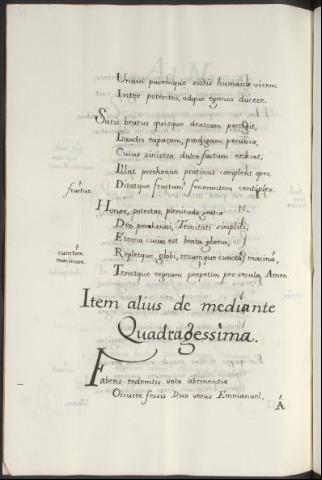 Unam paremque sortis humanæ vicem
Inter potentes, adque egenos ducere.
Satis beatus quisque dextram porrigit,
Laudis rapacem, prodigam pecuniæ,
Cuius sinistra dulce factum nesciat;
Illum perhennes protinus complent opes,
Ditatque fructum fenerantem centiplex.
fructus.
Honor, potestas, plenitudo, gratia
Deo perhenni, Trinitati simplici;
Eterna cuius est beata gloria,
Repletque globi, tecumque cunctam macinam,
cunctam
macinam.
Tenetque regnum perpetim per secula. Amen.
Item alius de mediante
Quadragessima.
Fabens redemtis vota abstinentia
Occurre fessis Dux verus Emmanuel,
A